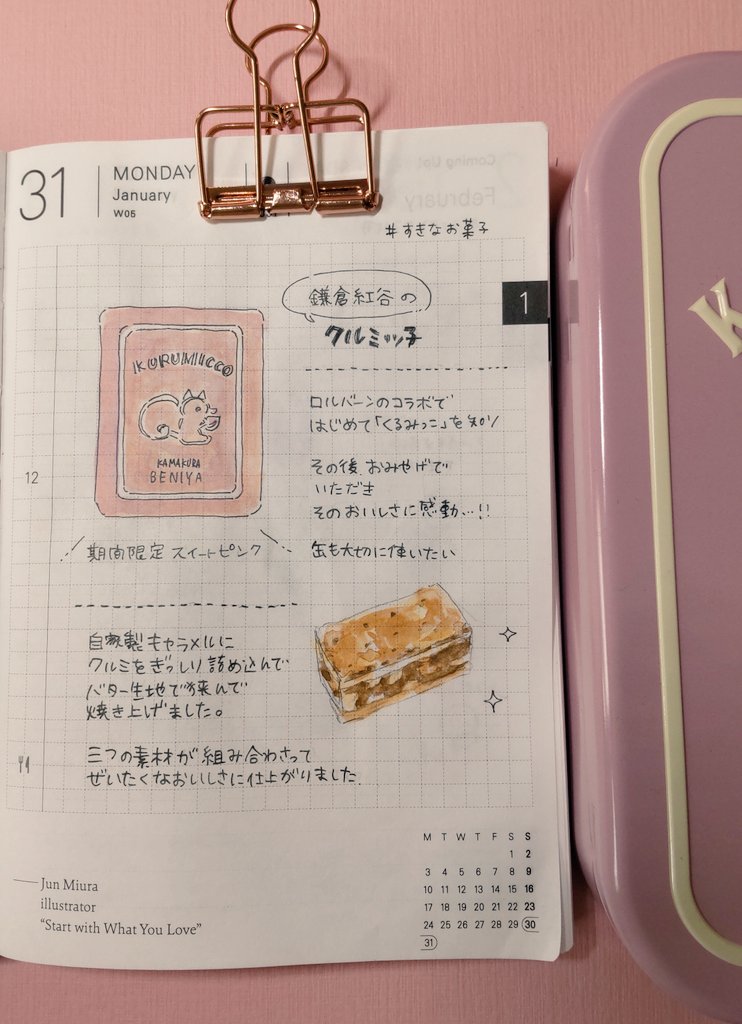 31
MONDAY
January
W05
Coming Up!
February
#すきなお菓子
1
鎌倉紅谷の
クルミッ子
KURUMICCO
KAMAKURA
BENIYA
ロルバーンのコラボで
はじめて「くるみっこ」を知り
その後 おみやげで
いただき
そのおいしさに感動…!!
12
期間限定 スイートピンク
缶も大切に使いたい
自家製キャラメルに
クルミをぎっしり詰め込んで
バター生地で挟んで
焼き上げました。
三つの素材が組み合わさって
ぜいたくなおいしさに仕上がりました.
M T W T F S S
1 2
3 4 5 6 7 8 9
10 11 12 13 14 15 16
17 18 19 20 21 22 23
24 25 26 27 28 29 30
31
Jun Miura
illustrator
“Start with What You Love”
K